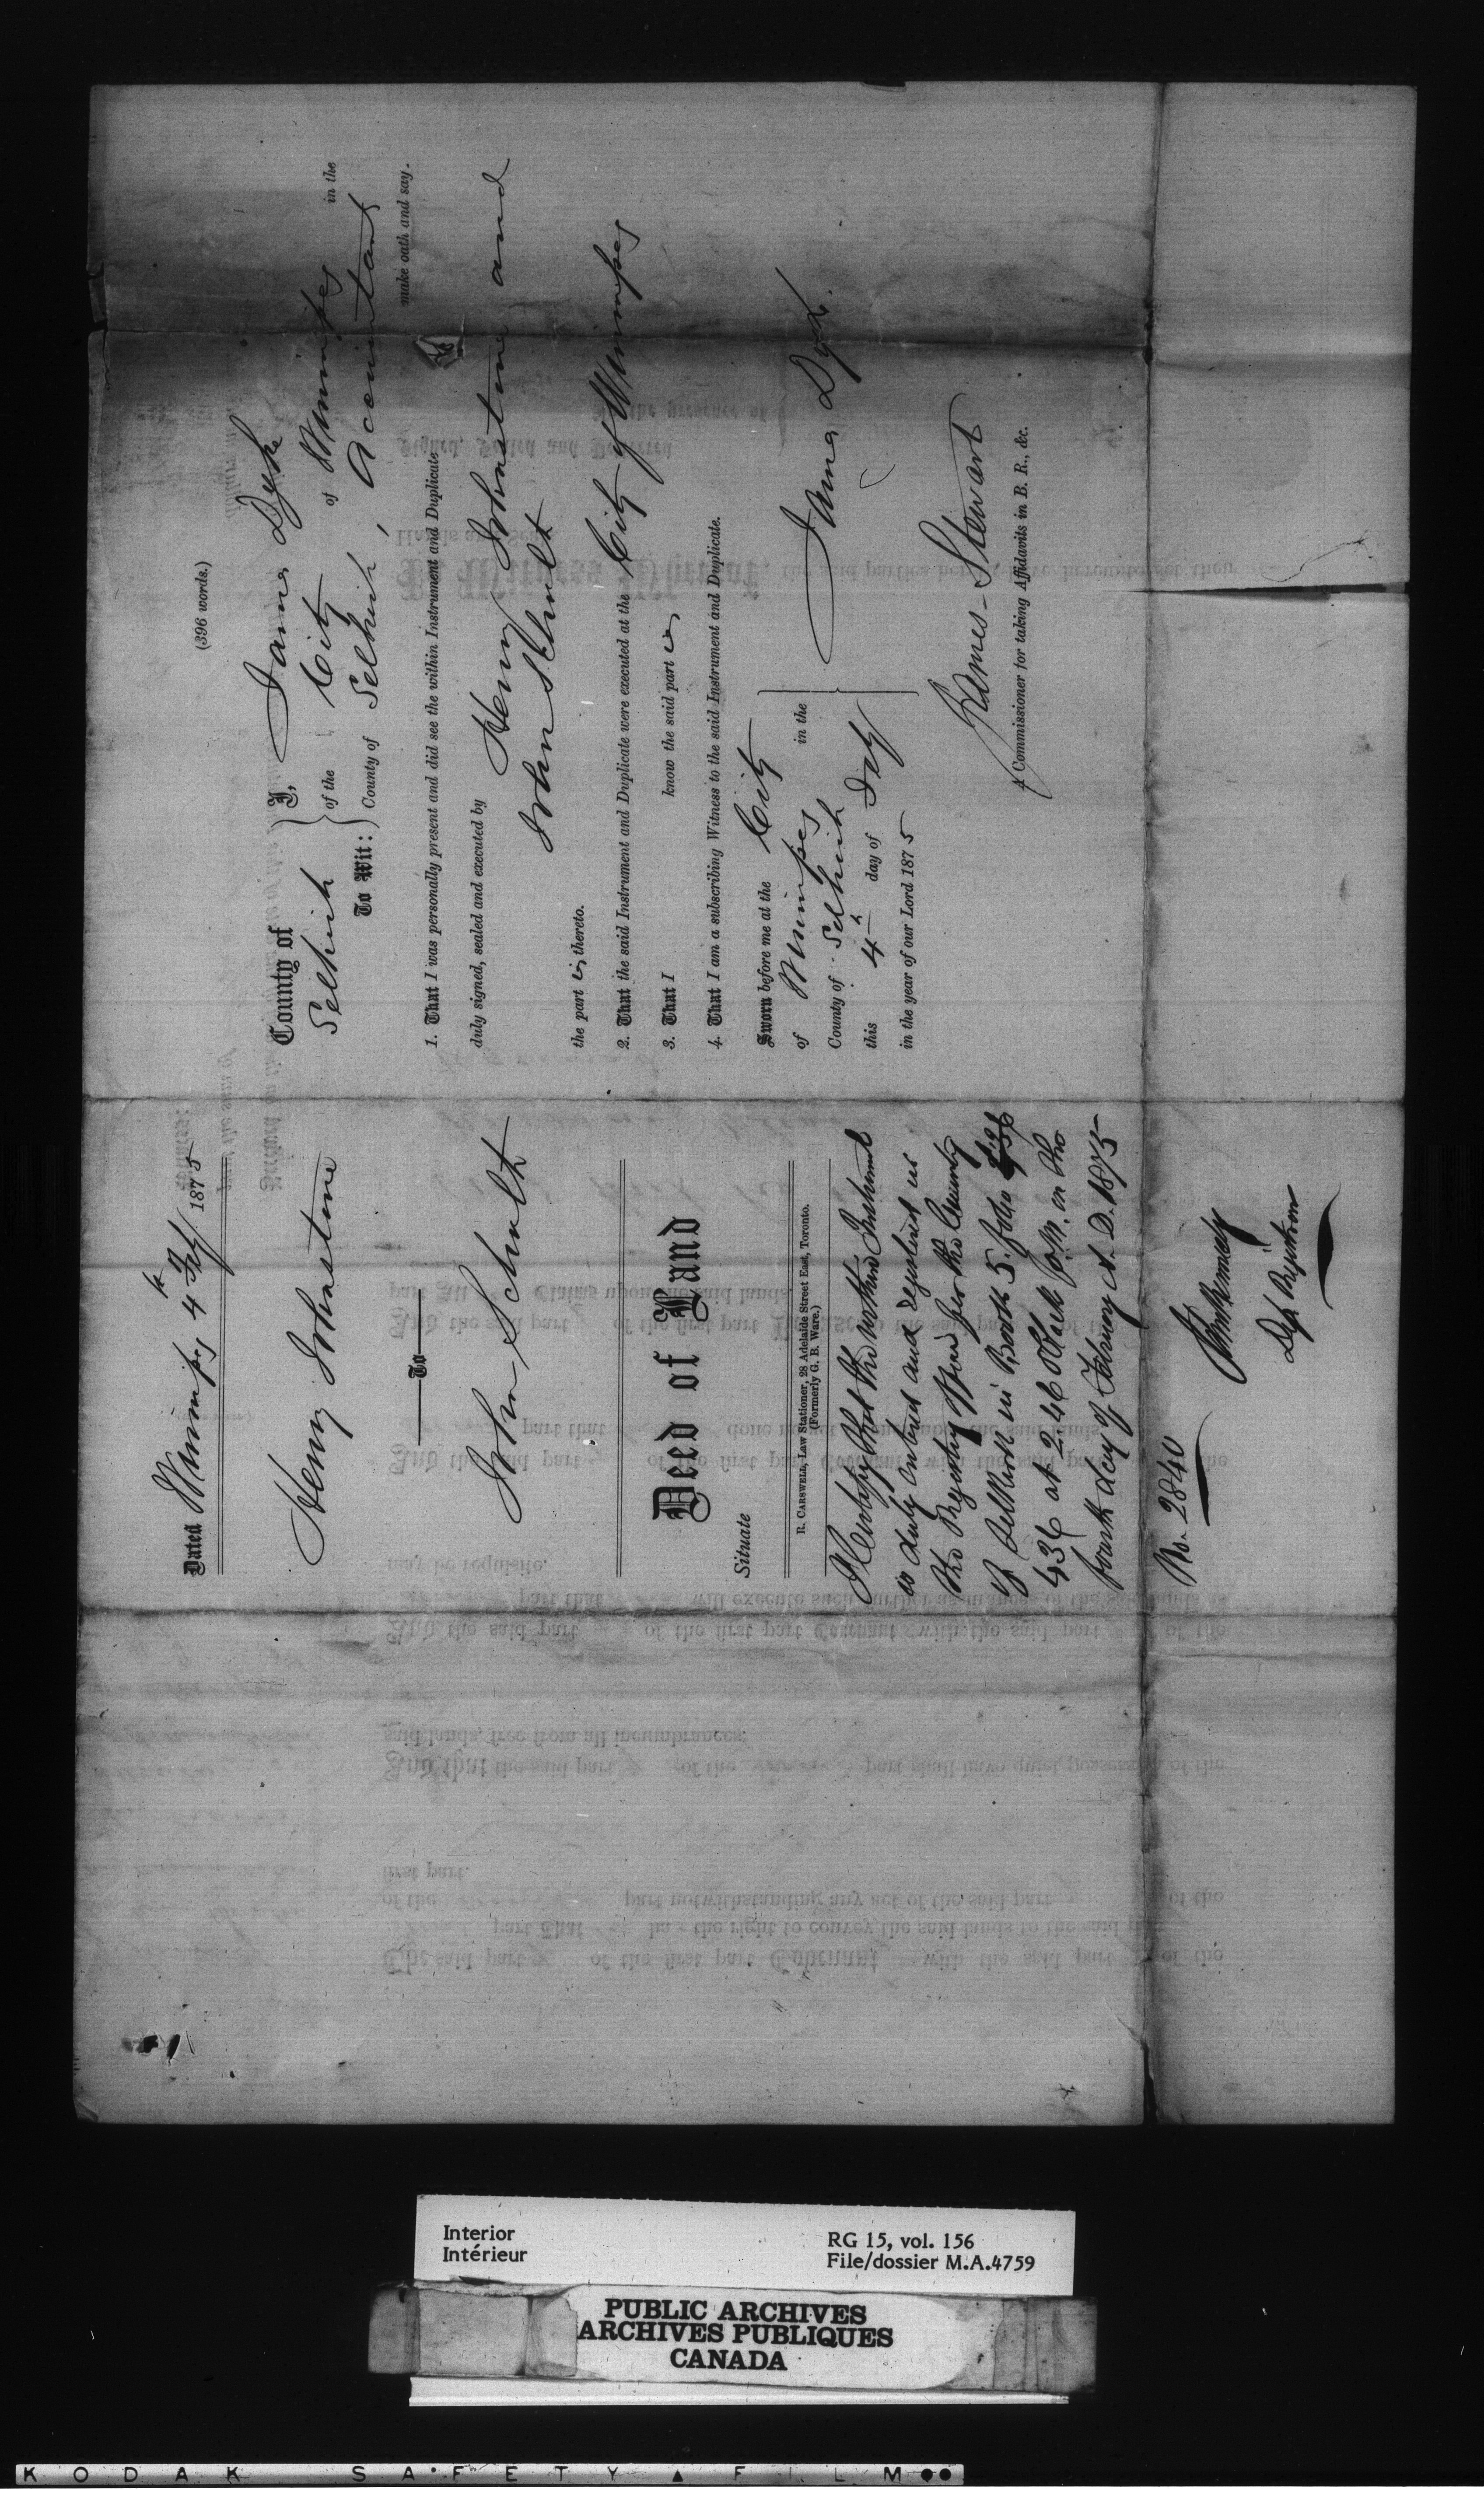 Dated Winnipeg 4th Feby 1875
Henry Johnstone
To
John Schultz
Deed of Land
Situate
R. CARSWELL, Law Stationer, 28 Adelaide Street East, Toronto.
(Formerly G. B. Ware.)
I Certify that the within Instrument
is duly Entered and Registered in
the Registry Office for the County
of Selkirk in Book 5. folio
436 at 2.46 o'clock P.M. on the
fourth day of February A.D. 1875
No. 2840
Dep Registrar
(396 words.)
County of
Selkirk
To Wit:
I, James Dyke
of the City of Winnipeg in the
County of Selkirk, Accountant
make oath and say.
1. That I was personally present and did see the within Instrument and Duplicate
duly signed, sealed and executed by Henry Johnstone and
John Schultz
the parties thereto.
2. That the said Instrument and Duplicate were executed at the City of Winnipeg
3. That I know the said parties
4. That I am a subscribing Witness to the said Instrument and Duplicate.
Sworn before me at the City
of Winnipeg in the
County of Selkirk
this 4th day of Feby
in the year of our Lord 1875
James Dyke.
James Stewart
A Commissioner for taking Affidavits in B. R., &c.
Interior
Intérieur
RG 15, vol. 156
File/dossier M.A.4759
PUBLIC ARCHIVES
ARCHIVES PUBLIQUES
CANADA
KODAK SAFETY FILM